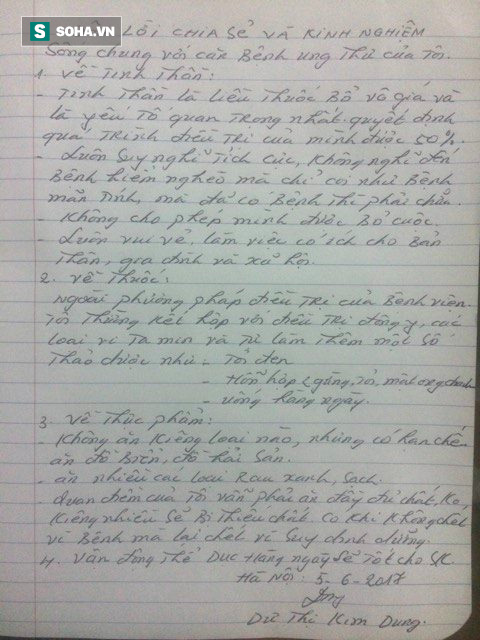 SOHA.VN
LỜI CHIA SẺ VÀ KINH NGHIỆM
Sống chung với căn Bệnh ung Thư của Tôi.
1. Về Tinh Thần:
- Tinh Thần là liều Thuốc Bổ vô giá và
là yếu Tố quan Trọng nhất quyết định
quá Trình điều Trị của mình được 50%.
- Luôn suy nghĩ Tích cực, không nghĩ đến
Bệnh hiểm nghèo mà chỉ coi như Bệnh
mãn Tính, mà đã có Bệnh Thì phải chữa.
- Không cho phép mình được Bỏ cuộc.
- Luôn vui vẻ, làm việc có ích cho Bản
Thân, gia đình và xã hội.
2. Về Thuốc:
Ngoài phương pháp điều Trị của Bệnh viện.
Tôi Thường kết hợp với điều Trị đông y, các
loại vi Ta min và Tự làm Thêm một số
Thảo dược như - Tỏi đen
- Hỗn hợp < gừng, Tỏi, mật ong chanh
- uống hàng ngày.
3. Về Thực phẩm:
- Không ăn kiêng loại nào, nhưng có hạn chế
ăn đồ Biển, đồ Hải Sản.
- ăn nhiều các loại Rau xanh, sạch.
- Quan điểm của Tôi vẫn phải ăn đầy đủ chất, Ko
kiêng nhiều sẽ Bị Thiếu chất. Có khi không chết
vì Bệnh mà lại chết vì suy dinh dưỡng.
4. Vận động Thể Dục Hàng ngày sẽ Tốt cho SK.
Hà Nội: 5-6-2017
Dư Thị Kim Dung.